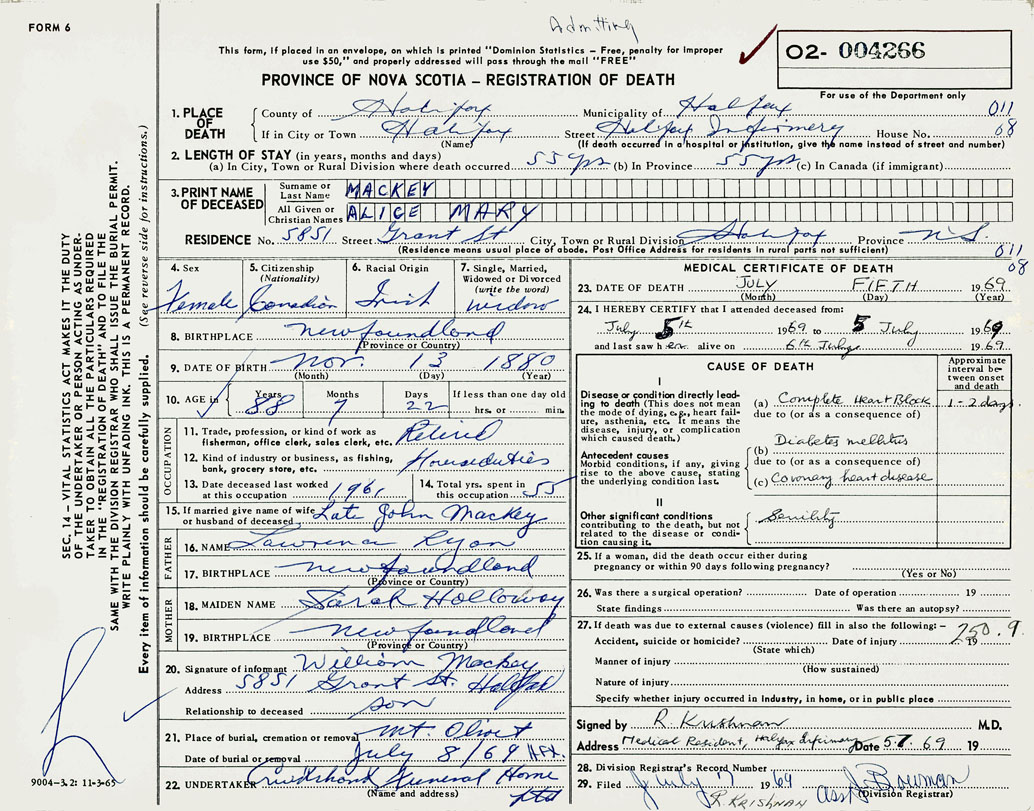 FORM 6
Admitting
This form, if placed in an envelope, on which is printed "Dominion Statistics – Free, penalty for improper
use $50," and properly addressed will pass through the mail "FREE"
PROVINCE OF NOVA SCOTIA – REGISTRATION OF DEATH
O2- 004266
For use of the Department only
1. PLACE OF DEATH
County of Halifax Municipality of Halifax 011
If in City or Town Halifax Street Halifax Infirmery House No. 08
(Name) (If death occurred in a hospital or institution, give the name instead of street and number)
2. LENGTH OF STAY (in years, months and days)
(a) In City, Town or Rural Division where death occurred 55 yrs (b) In Province 55 yrs (c) In Canada (if immigrant)
3. PRINT NAME OF DECEASED
Surname or Last Name MACKEY
All Given or Christian Names ALICE MARY
RESIDENCE No. 5851 Street Grant St City, Town or Rural Division Halifax Province N.S.
(Residence means usual place of abode. Post Office Address for residents in rural parts not sufficient)
011
08
4. Sex Female
5. Citizenship (Nationality) Canadian
6. Racial Origin Irish
7. Single, Married, Widowed or Divorced (write the word) widow
8. BIRTHPLACE newfoundland
(Province or Country)
9. DATE OF BIRTH Nov. 13 1880
(Month) (Day) (Year)
10. AGE in Years 88 Months 7 Days 22 If less than one day old hrs. or min.
OCCUPATION
11. Trade, profession, or kind of work as fisherman, office clerk, sales clerk, etc. Retired
12. Kind of industry or business, as fishing, bank, grocery store, etc. Houseduties
13. Date deceased last worked at this occupation 1961
14. Total yrs. spent in this occupation 55
15. If married give name of wife or husband of deceased Late John Mackey
FATHER
16. NAME Lawrence Ryan
17. BIRTHPLACE newfoundland
(Province or Country)
MOTHER
18. MAIDEN NAME Sarah Holloway
19. BIRTHPLACE newfoundland
(Province or Country)
20. Signature of informant William Mackey
Address 5851 Grant St. Halifax
Relationship to deceased son
21. Place of burial, cremation or removal Mt. Olivet
Date of burial or removal July 8/69 HFX
22. UNDERTAKER Cruikshank Funeral Home Ltd
(Name and address)
MEDICAL CERTIFICATE OF DEATH
23. DATE OF DEATH JULY FIFTH 1969
(Month) (Day) (Year)
24. I HEREBY CERTIFY that I attended deceased from:
July 5th 1969 to 5 July 1969
and last saw her alive on 6th July 1969
CAUSE OF DEATH
Approximate interval between onset and death
I
Disease or condition directly leading to death (This does not mean the mode of dying, e.g., heart failure, asthenia, etc. It means the disease, injury, or complication which caused death.)
(a) Complete Heart Block 1-2 days
due to (or as a consequence of)
Antecedent causes
Morbid conditions, if any, giving rise to the above cause, stating the underlying condition last.
(b) Diabetes mellitus
due to (or as a consequence of)
(c) Coronary heart disease
II
Other significant conditions contributing to the death, but not related to the disease or condition causing it.
Senility
25. If a woman, did the death occur either during
pregnancy or within 90 days following pregnancy?
(Yes or No)
26. Was there a surgical operation? Date of operation 19
State findings Was there an autopsy?
27. If death was due to external causes (violence) fill in also the following: – 250.9
Accident, suicide or homicide? Date of injury 19
(State which)
Manner of injury
(How sustained)
Nature of injury
Specify whether injury occurred in industry, in home, or in public place
Signed by R Krishnan M.D.
Address Medical Resident, Halifax Infirmary Date 5.7.69 19
28. Division Registrar's Record Number
29. Filed July 17 1969 Asst J Bowman
(Division Registrar)
R. KRISHNAN
SEC. 14 – VITAL STATISTICS ACT MAKES IT THE DUTY
OF THE UNDERTAKER OR PERSON ACTING AS UNDER-
TAKER TO OBTAIN ALL THE PARTICULARS REQUIRED
IN THE "REGISTRATION OF DEATH" AND TO FILE THE
SAME WITH THE DIVISION REGISTRAR WHO SHALL ISSUE THE BURIAL PERMIT.
WRITE PLAINLY WITH UNFADING INK. THIS IS A PERMANENT RECORD.
Every item of information should be carefully supplied. (See reverse side for instructions.)
9004–3.2: 11-3-65